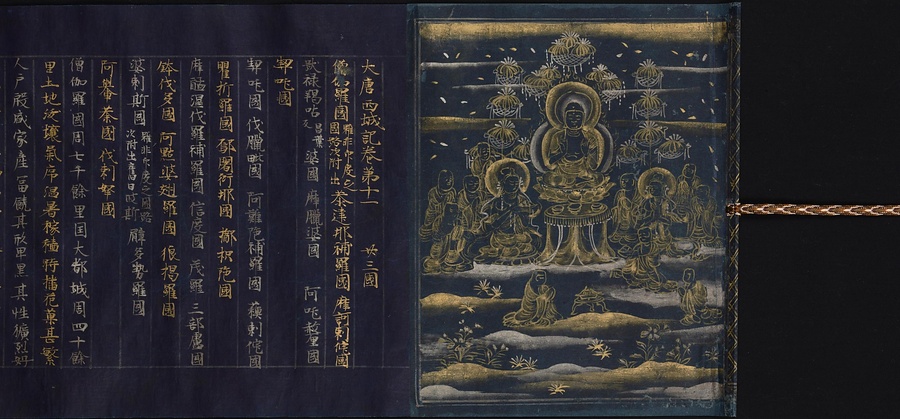 大唐西域記卷第十一 廿三國
僧伽羅國 雖非印度之國路次附出 荼達那補羅國 摩訶剌侘國
跋祿羯呫 昌葉反 婆國 摩臘婆國 阿吒釐國
契吒國
契吒國 伐臘毗國 阿難陀補羅國 蘇剌侘國
瞿折羅國 鄔闍衍那國 擲枳陀國
摩醯濕伐羅補羅國 信度國 茂羅三部盧國
鉢伐多國 阿點婆翅羅國 狼揭羅國
波剌斯國 雖非印度之國路次附出舊曰波斯 臂多勢羅國
阿軬荼國 伐剌拏國
僧伽羅國周七千餘里國大都城周四十餘
里土地沃壤氣序溫暑稼穡時播花菓甚繁
人戶殷盛家產富饒其形卑黑其性獷烈好